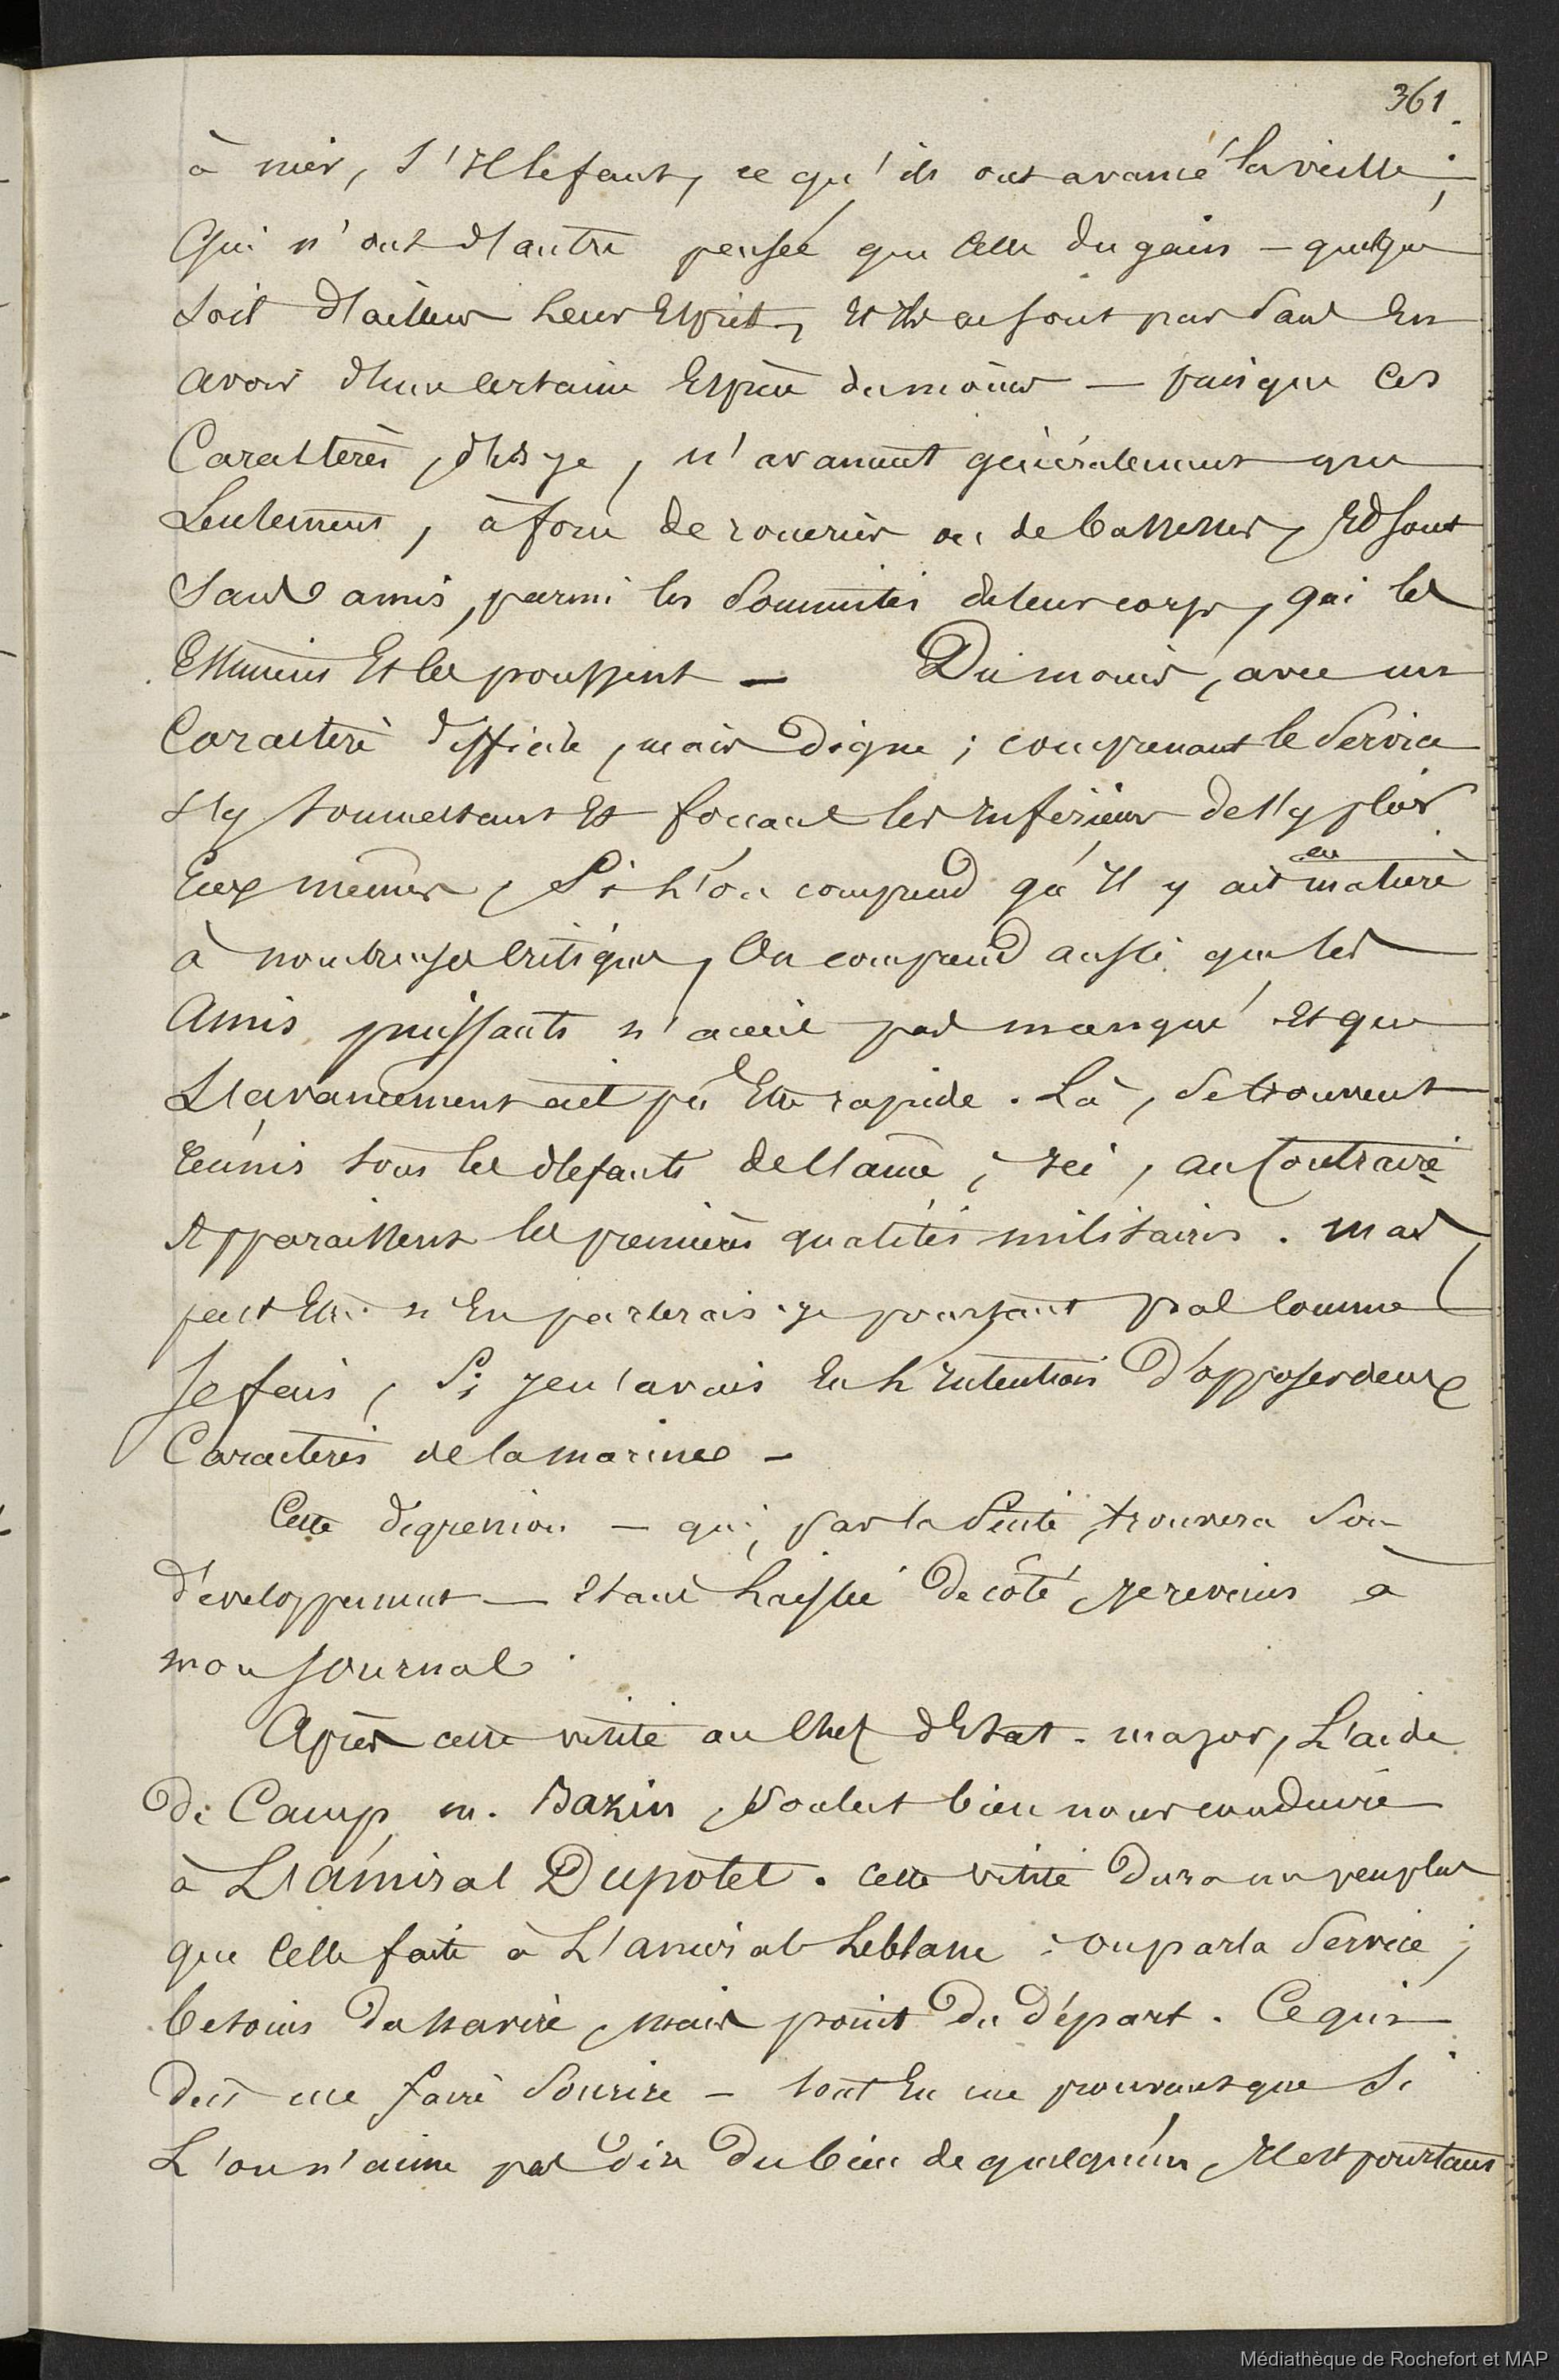 361.
à nier, s'Il le faut, ce qu'ils ont avancé la veille;
Qui n'ont d'autre pensée que Celle du gain — quelque
soit d'ailleurs leur Esprit, Et Ils ne sont pas sans En
avoir d'une certaine Espèce du moins — puisque ces
Caractères, dis-je, n'avancent généralement que
seulement, à force de roueries ou de bassesses, Et sont
sans amis, parmi les sommités de leur corps, qui les
Estiment Et les poussent — Du moins, avec un
Caractère difficile, mais digne; comprenant le service
s'y soumettant Et forçant les Inférieurs de s'y plier
Eux mêmes, Si L'on comprend qu'Il y ait eu matière
à nombreuses critiques, On comprend aussi que les
Amis puissants n'aient pas manqué Et que
L'avancement ait pû Etre rapide. Là, se trouvent
réunis tous les défauts de l'âme; Ici, au Contraire
Apparaissent les premières qualités militaires. Mais
peut Etre n'En parlerais-je pourtant pas comme
Je fais, Si je n'avais Eu L'Intention d'opposer deux
Caractères de la marine —
Cette digression — qui, par la suite, trouvera son
développement — Etant Laissée de côté, je reviens à
mon Journal.
Après cette visite au Chef d'Etat-major, L'aide
de Camp, m. Bazin, voulut bien nous conduire
à L'amiral Dupotet. Cette visite dura un peu plus
que Celle faite à L'amiral Leblanc: on parla service;
besoins du navire, mais point du départ. Ce qui
dut me faire sourire — tout En me prouvant que si
L'on n'aime pas dire du bien de quelqu'un, Il est pourtant
Médiathèque de Rochefort et MAP